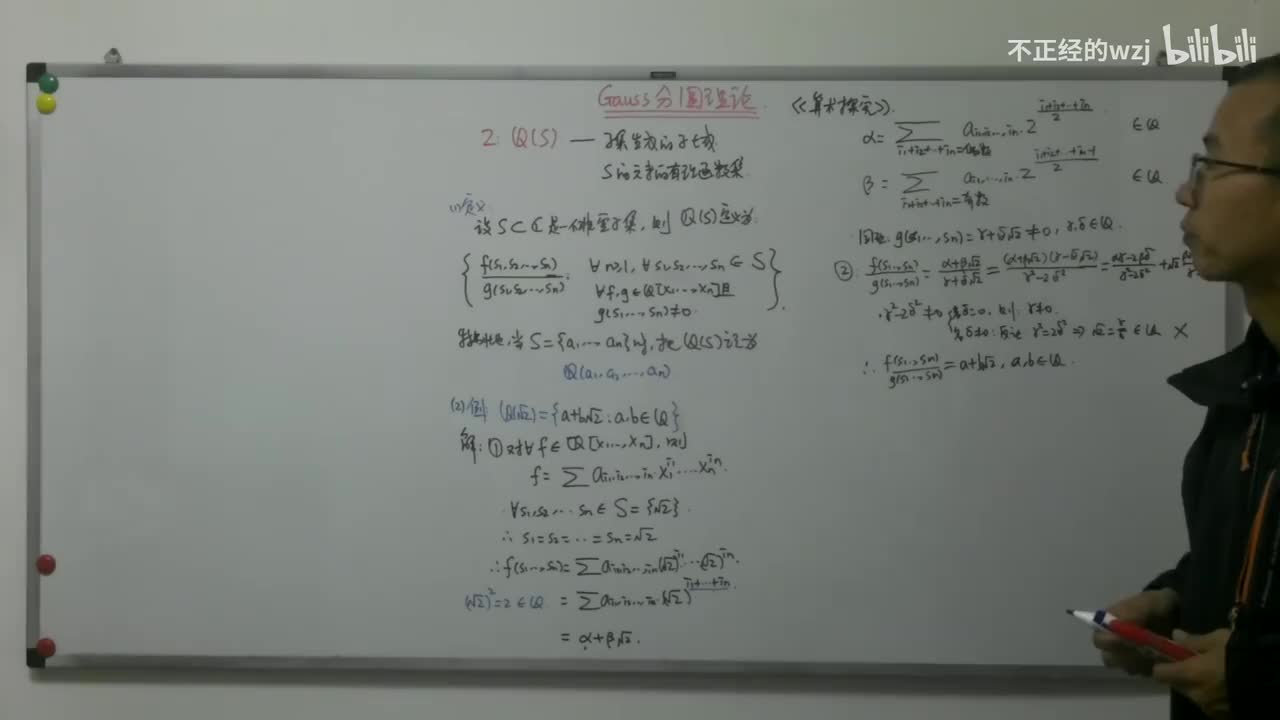 不正经的wzj bilibili
Gauss分圆理论 《算术探究》
2. Q(S) — S生成的子域
S的元素的有理函数集
(1)定义
设 S⊂C 是一个非空子集, 则 Q(S)定义为
{ f(s₁,s₂,…,sₙ)/g(s₁,s₂,…,sₙ) : ∀n≥1, ∀s₁,s₂,…,sₙ∈S
∀f,g∈Q[x₁,…,xₙ]且
g(s₁,…,sₙ)≠0 }.
特别地, 当 S={a₁,…,aₙ}时, 把Q(S)记为
Q(a₁,a₂,…,aₙ)
(2)例: Q(√2)={a+b√2 : a,b∈Q}
解: ①对∀f∈Q[x₁,…,xₙ], 则
f=∑a_{i₁,i₂,…,iₙ} x₁^{i₁}…xₙ^{iₙ}.
∀s₁,s₂,…,sₙ∈S={√2}.
∴ s₁=s₂=…=sₙ=√2
∴f(s₁,…,sₙ)=∑a_{i₁,i₂,…,iₙ}(√2)^{i₁}…(√2)^{iₙ}.
(√2)²=2∈Q =∑a_{i₁,i₂,…,iₙ}(√2)^{i₁+…+iₙ}.
=α+β√2.
α=∑_{i₁+i₂+…+iₙ=偶数} a_{i₁,i₂,…,iₙ} 2^{(i₁+i₂+…+iₙ)/2} ∈Q
β=∑_{i₁+i₂+…+iₙ=奇数} a_{i₁,…,iₙ} 2^{(i₁+i₂+…+iₙ-1)/2} ∈Q
同理: g(s₁,…,sₙ)=γ+δ√2≠0, γ,δ∈Q.
② f(s₁,…,sₙ)/g(s₁,…,sₙ)=(α+β√2)/(γ+δ√2)=(α+β√2)(γ-δ√2)/(γ²-2δ²)=(αγ-2βδ)/(γ²-2δ²)+√2
∵γ²-2δ²≠0 若δ=0, 则 γ≠0.
若δ≠0: 反证 γ²=2δ² ⇒ √2=γ/δ∈Q ×
∴ f(s₁,…,sₙ)/g(s₁,…,sₙ)=a+b√2, a,b∈Q.